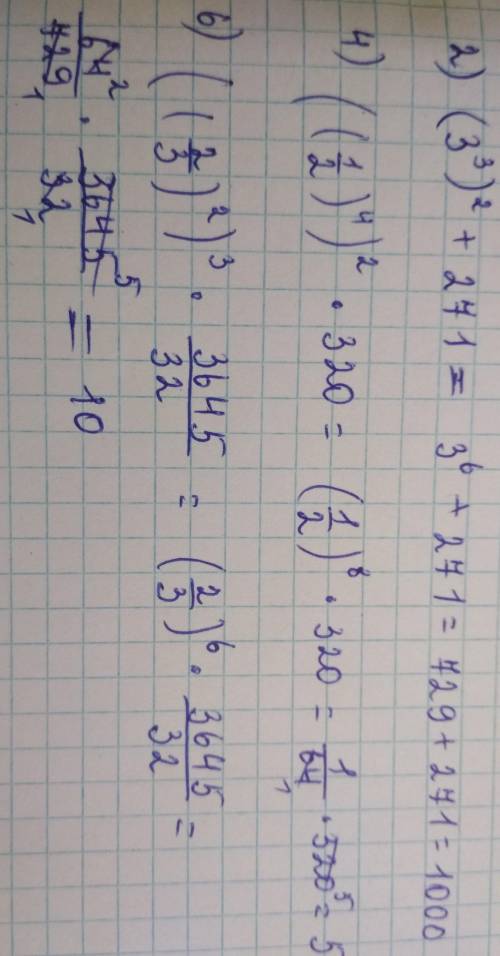 2) (3³)² + 271 = 3⁶ + 271 = 729 + 271 = 1000
4) ((1/2)⁴)² · 320 = (1/2)⁸ · 320 = 1/64 · 320 = 5
6) ((2/3)²)³ · 3645/32 = (2/3)⁶ · 3645/32 =
64/729 · 3645/32 = 10